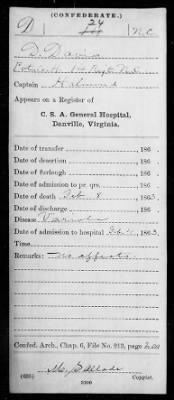 (CONFEDERATE.)
D 24 N.C.
D. D
Captain
Appears on a Register of
C. S. A. General Hospital,
Danville, Virginia.
Date of transfer , 186 .
Date of desertion , 186 .
Date of furlough , 186 .
Date of admission to pr. qrs. , 186 .
Date of death Feb 8 , 1863
Date of discharge , 186 .
Disease Variola
Date of admission to hospital Feb , 1863
Time
Remarks: no effects
Confed. Arch., Chap. 6, File No. 212, page
Copyist.